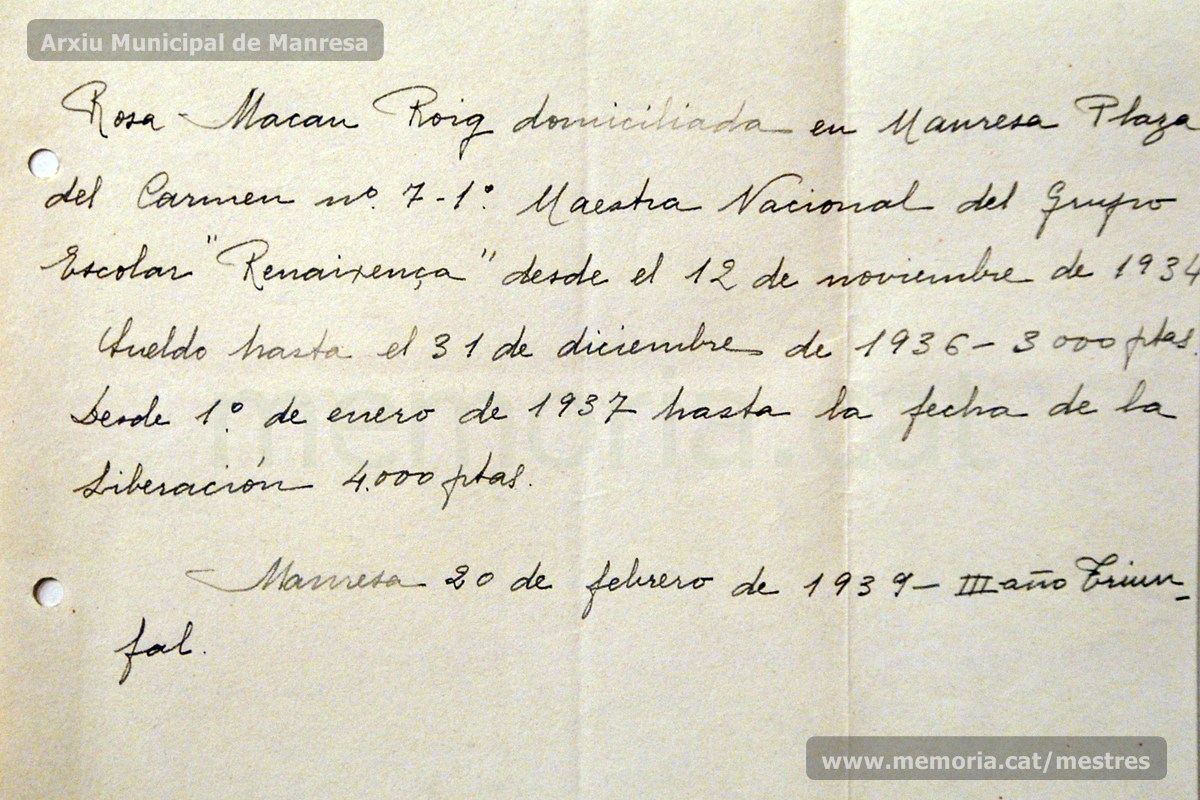 Arxiu Municipal de Manresa
Rosa Macau Roig domiciliada en Manresa Plaza
del Carmen nº. 7-1º. Maestra Nacional del Grupo
Escolar "Renaixença" desde el 12 de noviembre de 1934
Sueldo hasta el 31 de diciembre de 1936 - 3000 ptas.
Desde 1º. de enero de 1937 hasta la fecha de la
Liberación 4.000 ptas.
Manresa 20 de febrero de 1939 - III año Triun-
fal.
memoria.cat
www.memoria.cat/mestres